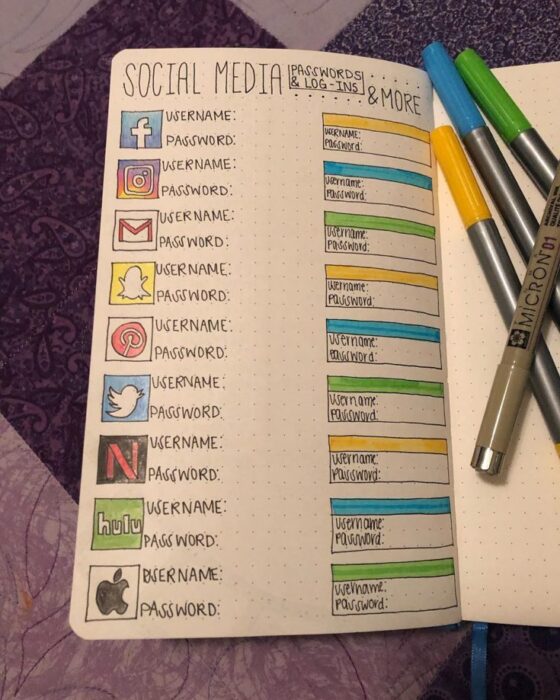 SOCIAL MEDIA PASSWORDS & LOG-INS & MORE
f USERNAME:
PASSWORD:
USERNAME:
PASSWORD:
M USERNAME:
PASSWORD:
USERNAME:
PASSWORD:
USERNAME:
PASSWORD:
USERNAME:
PASSWORD:
N USERNAME:
PASSWORD:
hulu USERNAME:
PASSWORD:
USERNAME:
PASSWORD:
USERNAME:
Password:
Username:
Password:
Username:
Password:
Username:
Password:
Username:
Password:
Username:
Password:
Username:
Password:
Username:
Password:
Username:
Password:
MICRON 01